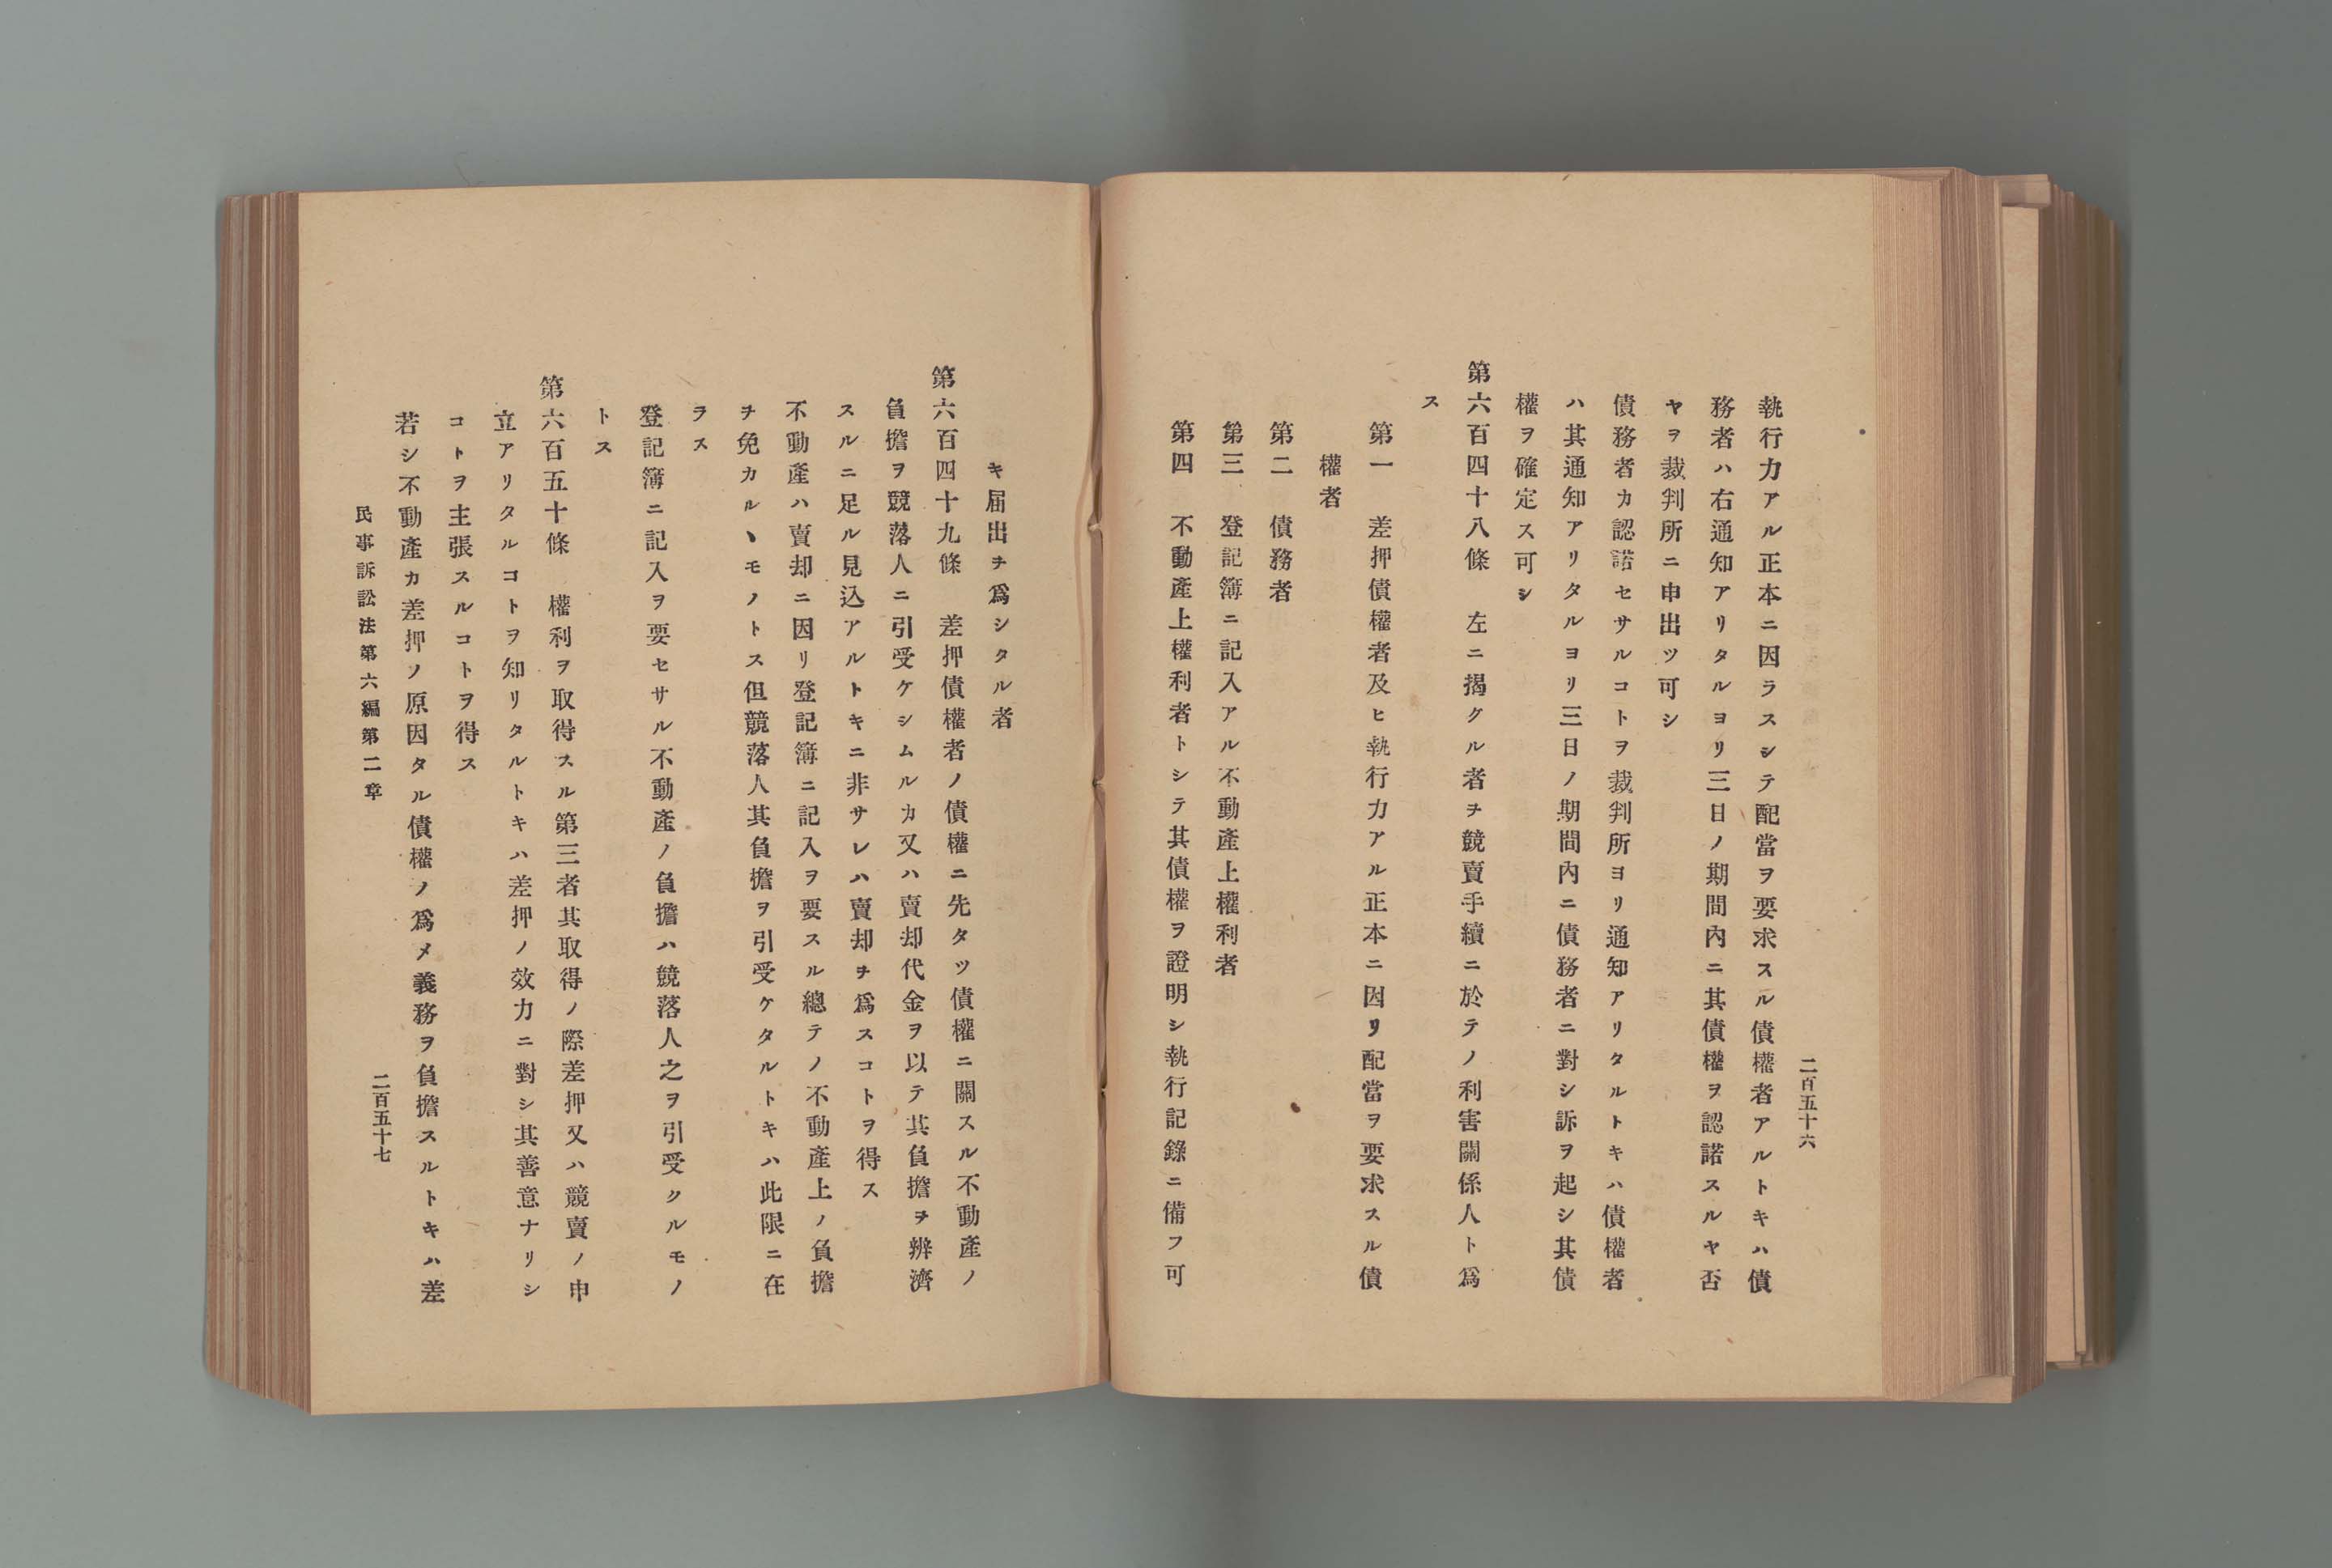 二百五十六
執行力アル正本ニ因ラスシテ配當ヲ要求スル債權者アルトキハ債
務者ハ右通知アリタルヨリ三日ノ期間內ニ其債權ヲ認諾スルヤ否
ヤヲ裁判所ニ申出ツ可シ
債務者カ認諾セサルコトヲ裁判所ヨリ通知アリタルトキハ債權者
ハ其通知アリタルヨリ三日ノ期間內ニ債務者ニ對シ訴ヲ起シ其債
權ヲ確定ス可シ
第六百四十八條　左ニ揭クル者ヲ競賣手續ニ於テノ利害關係人ト爲
ス
第一　差押債權者及ヒ執行力アル正本ニ因リ配當ヲ要求スル債
權者
第二　債務者
第三　登記簿ニ記入アル不動產上權利者
第四　不動產上權利者トシテ其債權ヲ證明シ執行記錄ニ備フ可
キ届出ヲ爲シタル者
第六百四十九條　差押債權者ノ債權ニ先タツ債權ニ關スル不動產ノ
負擔ヲ競落人ニ引受ケシムルカ又ハ賣却代金ヲ以テ其負擔ヲ辨濟
スルニ足ル見込アルトキニ非サレハ賣却ヲ爲スコトヲ得ス
不動產ハ賣却ニ因リ登記簿ニ記入ヲ要スル總テノ不動產上ノ負擔
ヲ免カルヽモノトス但競落人其負擔ヲ引受ケタルトキハ此限ニ在
ラス
登記簿ニ記入ヲ要セサル不動產ノ負擔ハ競落人之ヲ引受クルモノ
トス
第六百五十條　權利ヲ取得スル第三者其取得ノ際差押又ハ競賣ノ申
立アリタルコトヲ知リタルトキハ差押ノ效力ニ對シ其善意ナリシ
コトヲ主張スルコトヲ得ス
若シ不動產カ差押ノ原因タル債權ノ爲メ義務ヲ負擔スルトキハ差
民事訴訟法第六編第二章
二百五十七